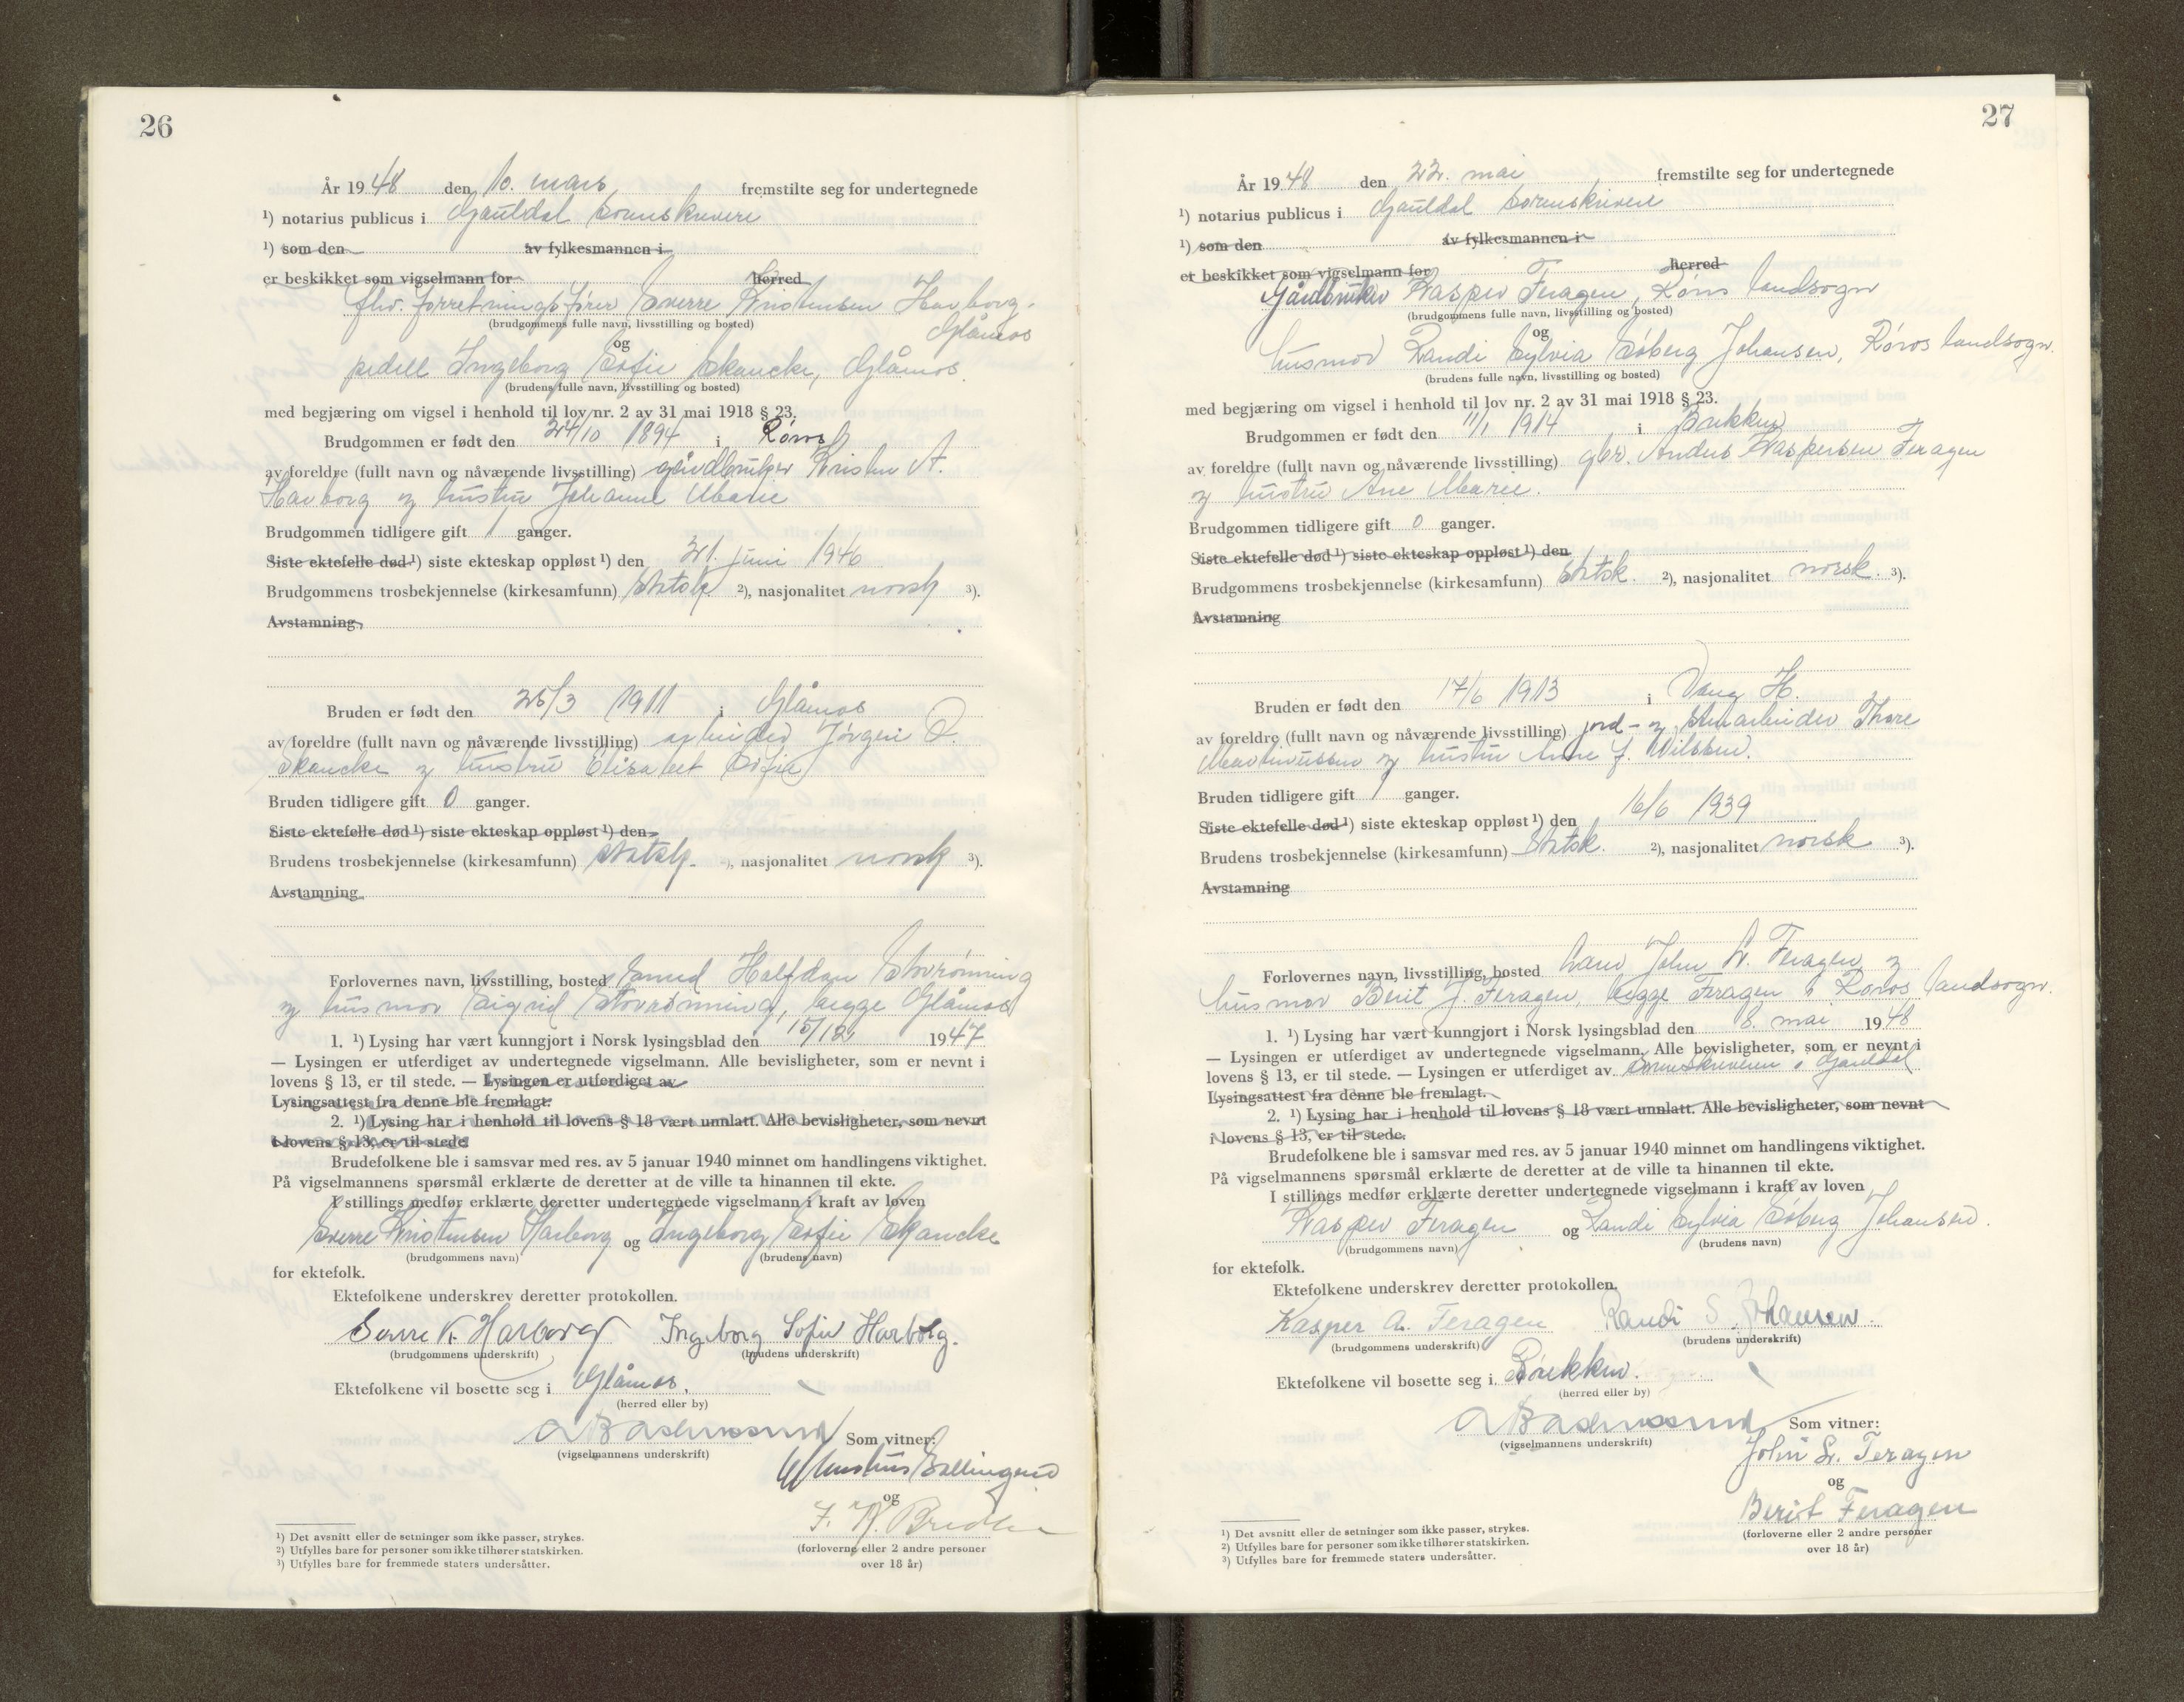 26
År 1948 den 10. mars fremstilte seg for undertegnede
¹) notarius publicus i Gauldal sorenskriveri
¹) som den av fylkesmannen i
er beskikket som vigselmann for herred
fhv. forretningsfører Sverre Kristensen Harborg,
(brudgommens fulle navn, livsstilling og bosted)
Glåmos
og
pedell Ingeborg Sofie Skancke, Glåmos.
(brudens fulle navn, livsstilling og bosted)
med begjæring om vigsel i henhold til lov nr. 2 av 31 mai 1918 § 23.
Brudgommen er født den 24/10 1894 i Røros
av foreldre (fullt navn og nåværende livsstilling) gårdbruker Kristen A.
Harborg og hustru Johanne Marie
Brudgommen tidligere gift 1 ganger.
Siste ektefelle død ¹) siste ekteskap oppløst ¹) den 21. juni 1946
Brudgommens trosbekjennelse (kirkesamfunn) Statsk. ²), nasjonalitet norsk ³).
Avstamning
Bruden er født den 25/3 1911 i Glåmos
av foreldre (fullt navn og nåværende livsstilling) arbeider Jørgen O.
Skancke og hustru Elisabet Sofie
Bruden tidligere gift 0 ganger.
Siste ektefelle død ¹) siste ekteskap oppløst ¹) den
Brudens trosbekjennelse (kirkesamfunn) Statsk. ²), nasjonalitet norsk ³).
Avstamning
Forlovernes navn, livsstilling, bosted Halfdan Storrønning
og husmor Sigrid Storrønning, begge Glåmos
1. ¹) Lysing har vært kunngjort i Norsk lysingsblad den 15/12 1947
— Lysingen er utferdiget av undertegnede vigselmann. Alle bevisligheter, som er nevnt i
lovens § 13, er til stede. — Lysingen er utferdiget av
Lysingsattest fra denne ble fremlagt.
2. ¹) Lysing har i henhold til lovens § 18 vært unnlatt. Alle bevisligheter, som nevnt
i lovens § 13, er til stede.
Brudefolkene ble i samsvar med res. av 5 januar 1940 minnet om handlingens viktighet.
På vigselmannens spørsmål erklærte de deretter at de ville ta hinannen til ekte.
I stillings medfør erklærte deretter undertegnede vigselmann i kraft av loven
Sverre Kristensen Harborg og Ingeborg Sofie Skancke
(brudgommens navn) (brudens navn)
for ektefolk.
Ektefolkene underskrev deretter protokollen.
Sverre K. Harborg Ingeborg Sofie Harborg.
(brudgommens underskrift) (brudens underskrift)
Ektefolkene vil bosette seg i Glåmos.
(herred eller by)
Som vitner:
(vigselmannens underskrift)
og
(forloverne eller 2 andre personer
over 18 år)
¹) Det avsnitt eller de setninger som ikke passer, strykes.
²) Utfylles bare for personer som ikke tilhører statskirken.
³) Utfylles bare for fremmede staters undersåtter.
27
År 1948 den 22. mai fremstilte seg for undertegnede
¹) notarius publicus i Gauldal sorenskriveri
¹) som den av fylkesmannen i
er beskikket som vigselmann for herred
Gårdbruker Kasper Feragen, Røros landsogn
(brudgommens fulle navn, livsstilling og bosted)
og
husmor Randi Sylvia Søberg Johansen, Røros landsogn.
(brudens fulle navn, livsstilling og bosted)
med begjæring om vigsel i henhold til lov nr. 2 av 31 mai 1918 § 23.
Brudgommen er født den 11/1 1914 i Brekken
av foreldre (fullt navn og nåværende livsstilling) gbr. Anders Kaspersen Feragen
og hustru Ane Marie.
Brudgommen tidligere gift 0 ganger.
Siste ektefelle død ¹) siste ekteskap oppløst ¹) den
Brudgommens trosbekjennelse (kirkesamfunn) Statsk. ²), nasjonalitet norsk. ³).
Avstamning
Bruden er født den 17/6 1913 i Vang H.
av foreldre (fullt navn og nåværende livsstilling) jord- og stenarbeider Thore
og hustru Anne J. Nilssen.
Bruden tidligere gift 1 ganger.
Siste ektefelle død ¹) siste ekteskap oppløst ¹) den 16/6 1939
Brudens trosbekjennelse (kirkesamfunn) Statsk. ²), nasjonalitet norsk ³).
Avstamning
Forlovernes navn, livsstilling, bosted John L. Feragen og
husmor Berit J. Feragen, begge Feragen i Røros landsogn.
1. ¹) Lysing har vært kunngjort i Norsk lysingsblad den 8. mai 1948
— Lysingen er utferdiget av undertegnede vigselmann. Alle bevisligheter, som er nevnt i
lovens § 13, er til stede. — Lysingen er utferdiget av sorenskriveren i Gauldal
Lysingsattest fra denne ble fremlagt.
2. ¹) Lysing har i henhold til lovens § 18 vært unnlatt. Alle bevisligheter, som nevnt
i lovens § 13, er til stede.
Brudefolkene ble i samsvar med res. av 5 januar 1940 minnet om handlingens viktighet.
På vigselmannens spørsmål erklærte de deretter at de ville ta hinannen til ekte.
I stillings medfør erklærte deretter undertegnede vigselmann i kraft av loven
Kasper Feragen og Randi Sylvia Søberg Johansen.
(brudgommens navn) (brudens navn)
for ektefolk.
Ektefolkene underskrev deretter protokollen.
Kasper A. Feragen Randi S. Johansen.
(brudgommens underskrift) (brudens underskrift)
Ektefolkene vil bosette seg i Brekken.
(herred eller by)
Som vitner:
(vigselmannens underskrift)
John L. Feragen
og
Berit Feragen
(forloverne eller 2 andre personer
over 18 år)
¹) Det avsnitt eller de setninger som ikke passer, strykes.
²) Utfylles bare for personer som ikke tilhører statskirken.
³) Utfylles bare for fremmede staters undersåtter.